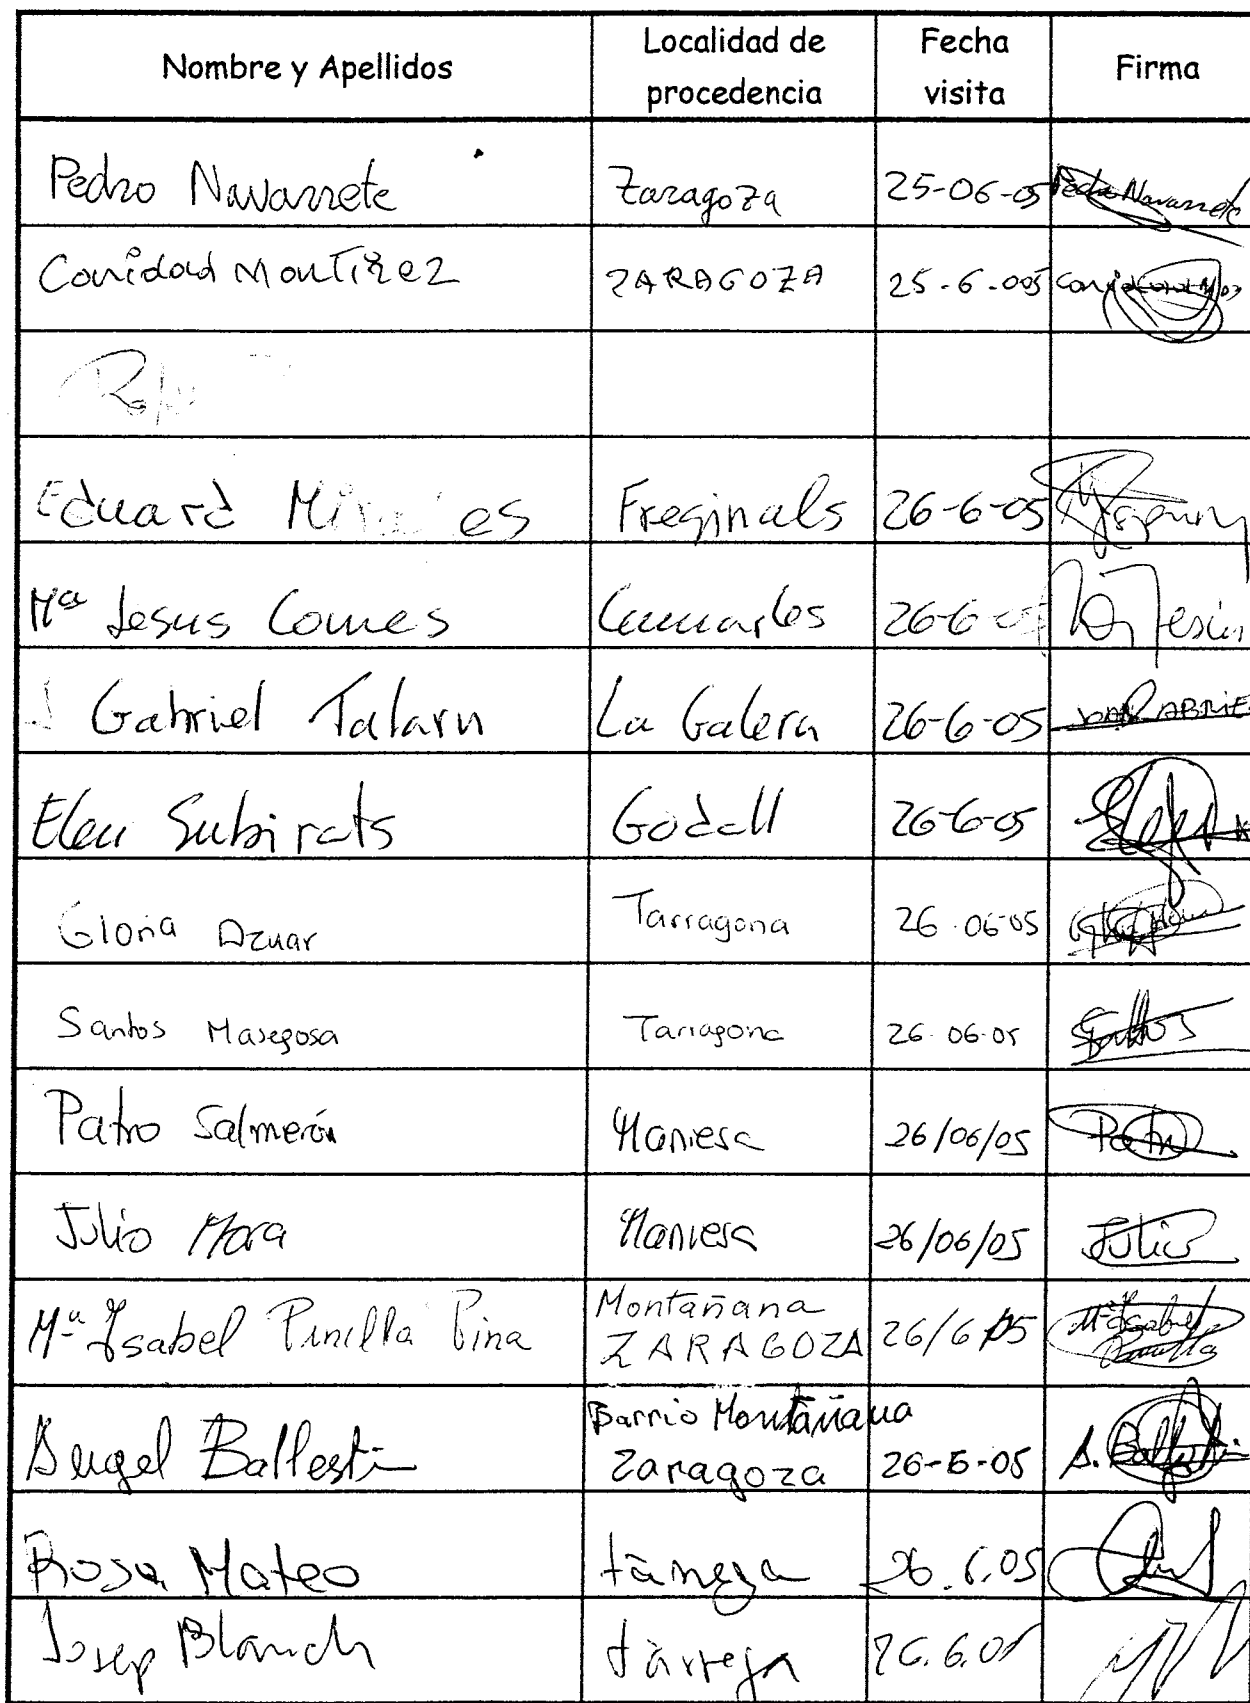 Nombre y Apellidos Localidad de procedencia Fecha visita Firma
Pedro Navarrete Zaragoza 25-06-05 Pedro Navarrete
Caridad Montirez ZARAGOZA 25-6-005
Eduard Freginals 26-6-05
Mª Jesus Comes 26-6-05 Jesús
J Gabriel Talarn La Galera 26-6-05
Eleu Subirats Godall 26-6-05
Gloria Azuar Tarragona 26-06-05
Santos Masegosa Tarragona 26-06-05 Santos
Patro Salmerón Manresa 26/06/05 Patro
Julio Mora Manresa 26/06/05 Julio
Mª Isabel Pinilla Pina Montañana ZARAGOZA 26/6/05 Mª Isabel Pinilla
Angel Ballestin Barrio Montañana Zaragoza 26-6-05 A. Ballestin
Rosa Mateo tàrrega 26.6.05
Josep Blanch tàrrega 26.6.05